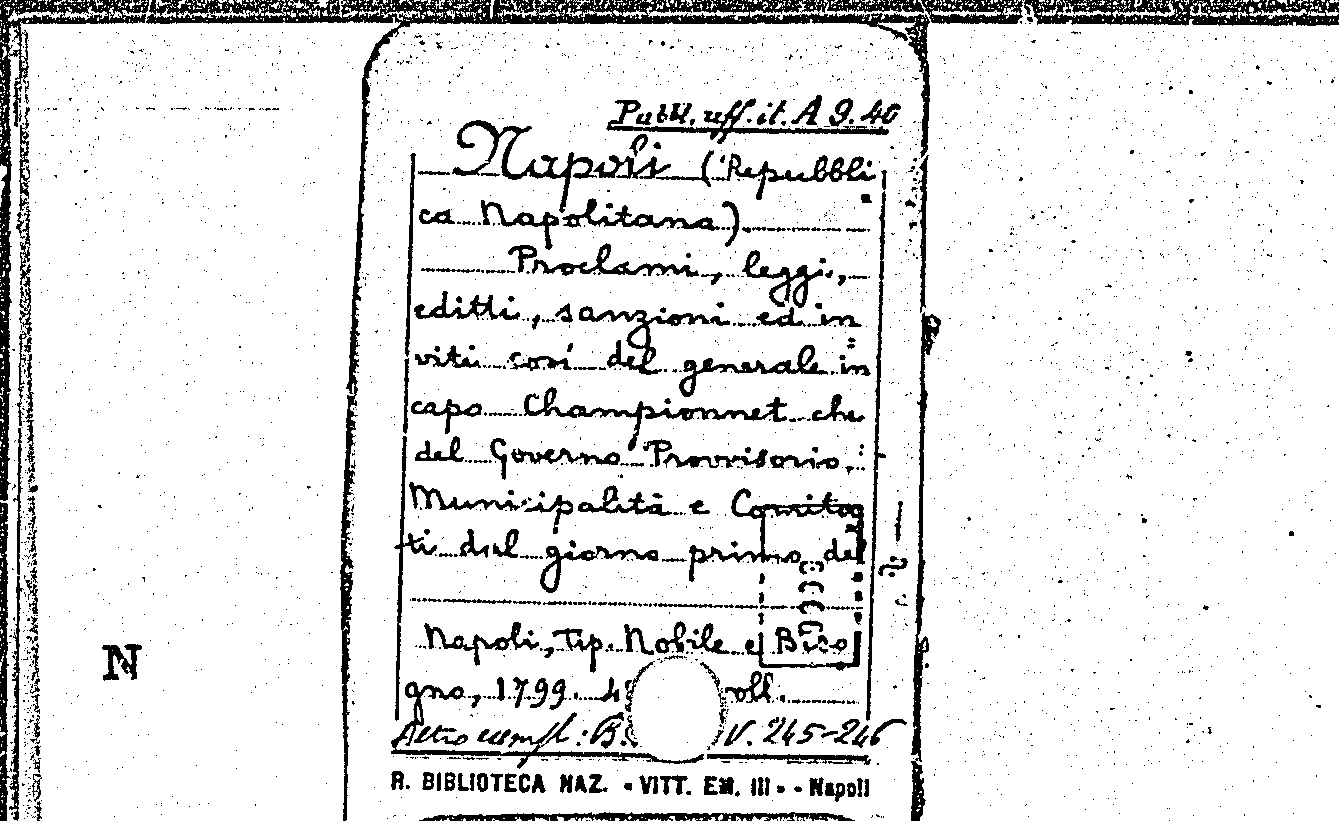 Pubbl. uff. it. A 9. 40
Napoli (Repubbli
ca Napolitana).
Proclami, leggi,
editti, sanzioni ed in
viti così del generale in
capo Championnet che
del Governo Provvisorio,
Municipalità e Comita
ti dal giorno primo del
Napoli, tip. Nobile e Biso
gno, 1799. voll.
Altro esempl: B. V. 245-246
R. BIBLIOTECA NAZ. - VITT. EM. III - - Napoli
N